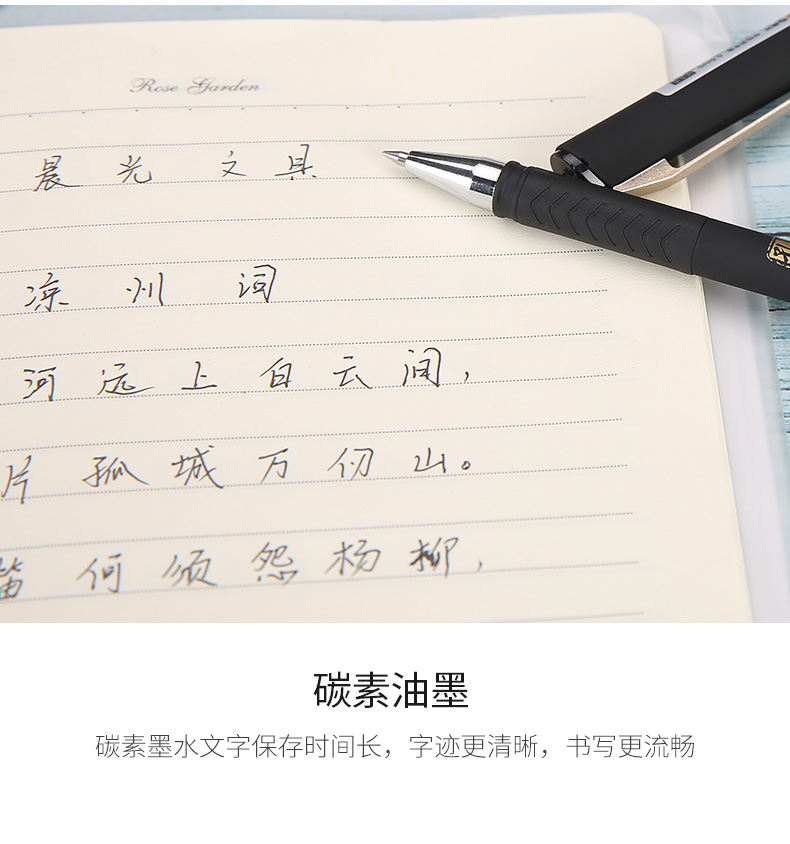 Rose Garden
晨光文具
凉州词
河远上白云间，
片孤城万仞山。
笛何须怨杨柳，
碳素油墨
碳素墨水文字保存时间长，字迹更清晰，书写更流畅